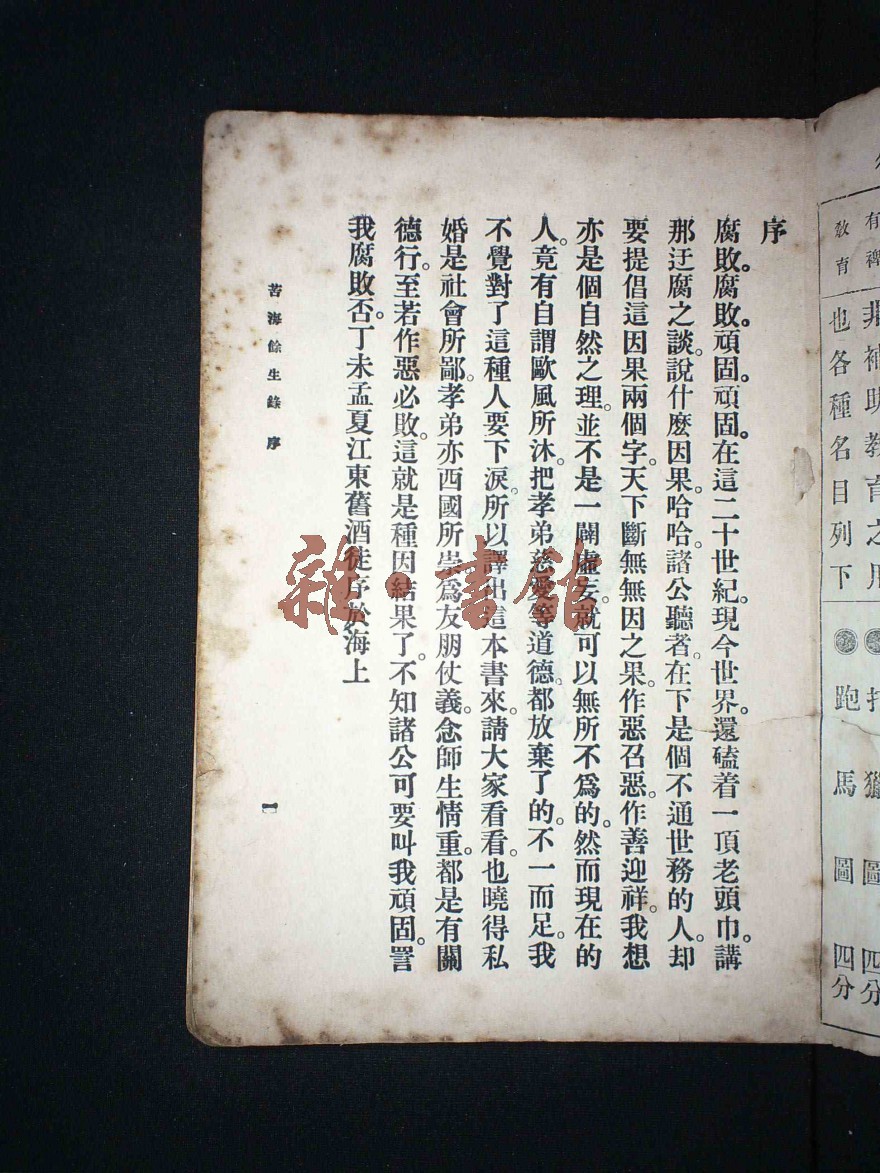 有裨
教育
非補助教育之用
也各種名目列下
獵圖四分
跑馬圖四分
序
腐敗。腐敗。頑固。頑固。在這二十世紀。現今世界。還磕着一頂老頭巾。講
那迂腐之談。說什麽因果。哈哈。諸公聽者。在下是個不通世務的人。却
要提倡這因果兩個字。天下斷無無因之果。作惡召惡。作善迎祥。我想
亦是個自然之理。並不是一闢虛妄。就可以無所不爲的。然而現在的
人。竟有自謂歐風所沐。把孝弟慈愛等道德。都放棄了的。不一而足。我
不覺對了這種人要下淚。所以譯出這本書來。請大家看看。也曉得私
婚是社會所鄙。孝弟亦西國所崇。爲友朋仗義。念師生情重。都是有關
德行。至若作惡必敗。這就是種因結果了。不知諸公可要叫我頑固。詈
我腐敗否。丁未孟夏江東舊酒徒序於海上
苦海餘生錄 序
一
雜·書館